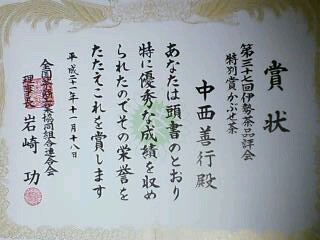 賞状
第三十七回伊勢茶品評会
特別賞かぶせ茶
中西善行殿
あなたは頭書のとおり
特に優秀な成績を収め
られたのでその栄誉を
たたえこれを賞します
平成二十一年十一月十八日
全国茶商工業協同組合連合会
理事長 岩崎功